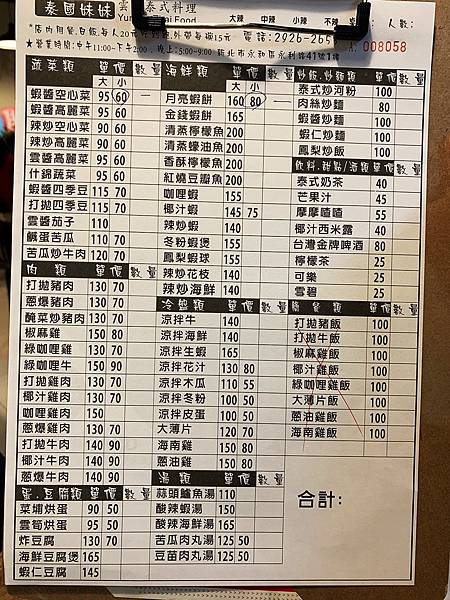 泰國妹妹 雲 泰式料理
Yun Food 大辣 中辣 小辣 不辣 人數:
*店內用餐,白飯,每人20元
電話:2926-265
★營業時間:中午11:00-下午2:00 晚上:5:00-9:00 新北市永和區永利路41號1樓
A: 008058
蔬菜類 單價 數量
大 小
蝦醬空心菜 95 60 —
蝦醬高麗菜 95 60
辣炒空心菜 95 60
辣炒高麗菜 95 60
雲醬高麗菜 95 60
什錦蔬菜 95 60
蝦醬四季豆 115 70
打拋四季豆 115 70
雲醬茄子 110
鹹蛋苦瓜 110 70
苦瓜炒牛肉 120 70
肉類 單價 數量
打拋豬肉 130 70
蔥爆豬肉 130 70
醃菜炒豬肉 130 70
椒麻雞 150 80
綠咖哩雞 130 70
綠咖哩牛 150 90
打拋雞肉 130 70
椰汁雞肉 130 70
咖哩雞肉 150
蔥爆雞肉 130 70
打拋牛肉 140 90
椰汁牛肉 140 90
蔥爆牛肉 140 90
蛋.豆腐類 單價 數量
菜埔烘蛋 90 50
雲筍烘蛋 95 50
炸豆腐 130 70
海鮮豆腐煲 165
蝦仁豆腐 145
海鮮類 單價 數量
大 小
月亮蝦餅 160 80 —
金錢蝦餅 165
清蒸檸檬魚 200
清蒸蠔油魚 200
香酥檸檬魚 200
紅燒豆瓣魚 200
咖哩蝦 155
椰汁蝦 145 75
辣炒蝦 140
冬粉蝦煲 155
鳳梨蝦球 155
辣炒花枝 140
辣炒海鮮 140
冷盤類 單價 數量
涼拌牛 140
涼拌海鮮 140
涼拌生蝦 165
涼拌花汁 130 80
涼拌木瓜 110 55
涼拌冬粉 100 50
涼拌皮蛋 100 50
大薄片 120 70
海南雞 150 80
蔥油雞 150 80
湯類 單價 數量
蒜頭鱸魚湯 110
酸辣蝦湯 150
酸辣海鮮湯 165
苦瓜肉丸湯 125 50
豆苗肉丸湯 125 50
炒飯.炒麵類 單價 數量
泰式炒河粉 100
肉絲炒麵 80
蝦醬炒麵 100
蝦仁炒麵 100
鳳梨炒飯 100
飲料.甜點/酒類 單價 數量
泰式奶茶 40
芒果汁 45
摩摩喳喳 55
椰汁西米露 40
台灣金牌啤酒 80
檸檬茶 25
可樂 25
雪碧 25
簡餐類 單價 數量
打拋豬飯 100
打拋牛飯 100
椒麻雞飯 100
椰汁雞飯 100
綠咖哩雞飯 100
大薄片飯 100
蔥油雞飯 100
海南雞飯 100
合計: